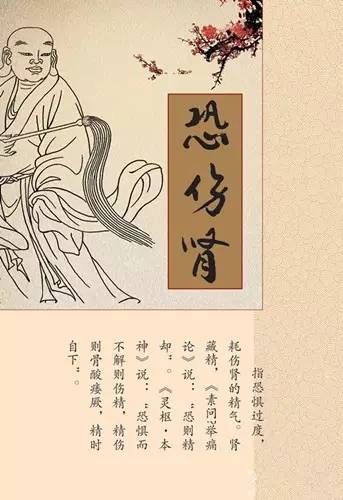 恐伤肾
指恐惧过度，
耗伤肾的精气。肾
藏精，《素问·举痛
论》说：“恐则精
却”。《灵枢·本
神》说：“恐惧而
不解则伤精，精伤
则骨酸痿厥，精时
自下”。